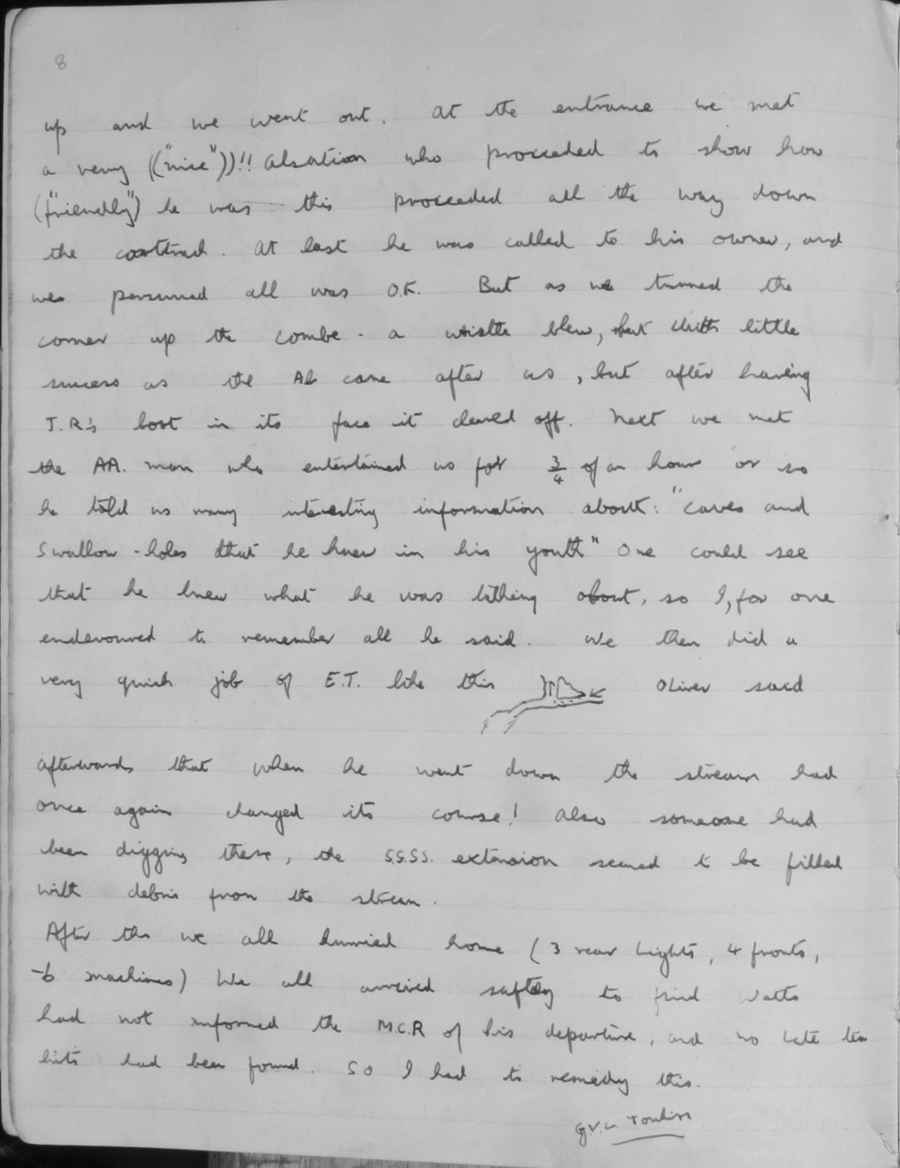 8
up and we went out. At the entrance we met
a very (("nice"))!! Alsation who proceeded to show how
("friendly") he was this proceeded all the way down
the . At last he was called to his owner, and
we persumed all was O.K. But as we turned the
corner up the combe - a whistle blew, but with little
success as the Al came after us, but after having
J.R.'s boot in its face it cleared off. Next we met
the AA. man who entertained us for 3/4 of an hour or so
he told us many interesting information about: "caves and
Swallow-holes that he knew in his youth" One could see
that he knew what he was talking about, so I, for one
endevoured to remember all he said. We then did a
very quick job of E.T. like this Oliver said
afterwards that when he went down the stream had
once again changed its course! Also someone had
been digging there, the S.S.S.S. extension seemed to be filled
with debris from the stream.
After this we all hurried home (3 rear lights, 4 fronts,
-6 machines) We all arrived saftey to find
had not informed the M.C.R of his departure, and no late tea
lists had been found. So I had to remedy this.
G.V.L Tomlin